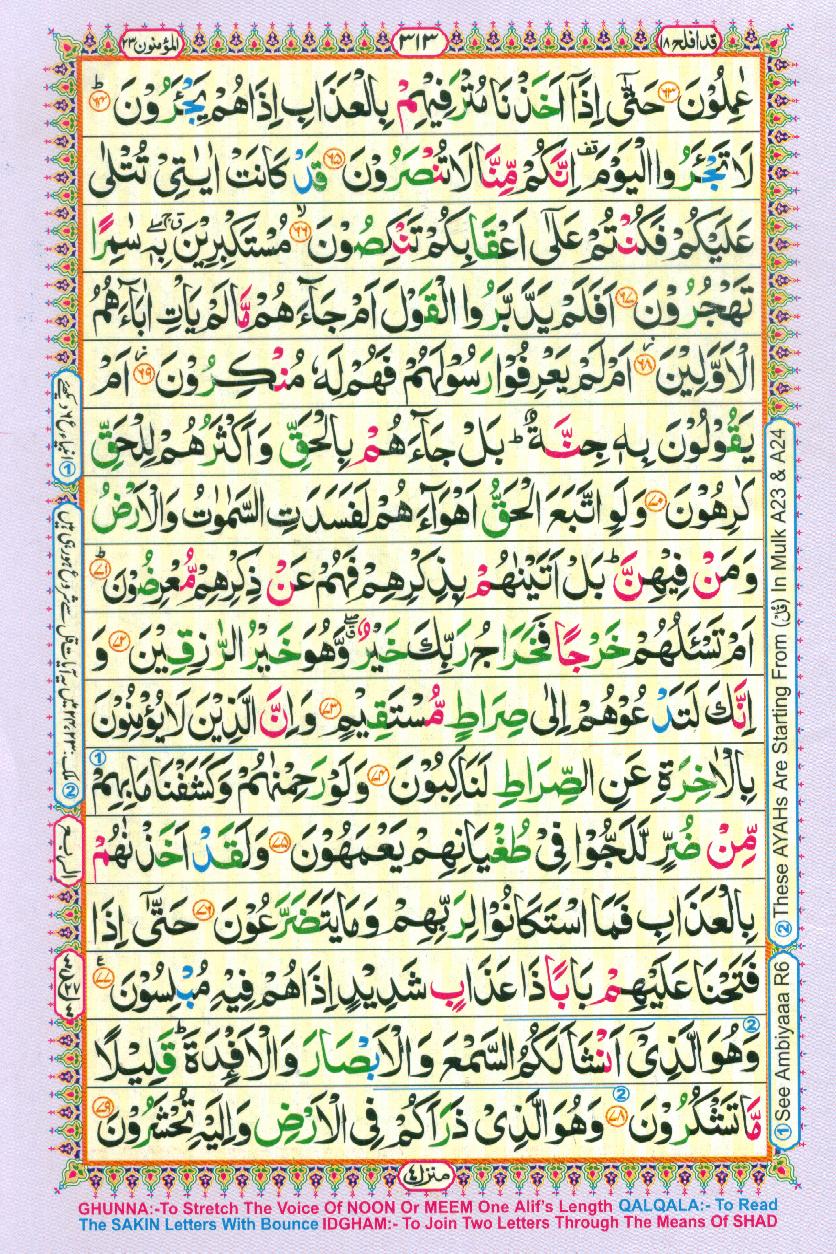 قد افلح ۱۸
۳۱۳
المؤمنون ۲۳
عٰمِلُوْنَ ﴿۶۳﴾ حَتّٰۤی اِذَاۤ اَخَذْنَا مُتْرَفِیْهِمْ بِالْعَذَابِ اِذَا هُمْ یَجْـَٔرُوْنَ ؕ﴿۶۴﴾
لَا تَجْـَٔرُوا الْیَوْمَ ۟ اِنَّكُمْ مِّنَّا لَا تُنْصَرُوْنَ ﴿۶۵﴾ قَدْ كَانَتْ اٰیٰتِیْ تُتْلٰی
عَلَیْكُمْ فَكُنْتُمْ عَلٰۤی اَعْقَابِكُمْ تَنْكِصُوْنَ ۙ﴿۶۶﴾ مُسْتَكْبِرِیْنَ ۖۗ بِهٖ سٰمِرًا
تَهْجُرُوْنَ ﴿۶۷﴾ اَفَلَمْ یَدَّبَّرُوا الْقَوْلَ اَمْ جَآءَهُمْ مَّا لَمْ یَاْتِ اٰبَآءَهُمُ
الْاَوَّلِیْنَ ؗ﴿۶۸﴾ اَمْ لَمْ یَعْرِفُوْا رَسُوْلَهُمْ فَهُمْ لَهٗ مُنْكِرُوْنَ ؗ﴿۶۹﴾ اَمْ
یَقُوْلُوْنَ بِهٖ جِنَّةٌ ؕ بَلْ جَآءَهُمْ بِالْحَقِّ وَاَكْثَرُهُمْ لِلْحَقِّ
كٰرِهُوْنَ ﴿۷۰﴾ وَلَوِ اتَّبَعَ الْحَقُّ اَهْوَآءَهُمْ لَفَسَدَتِ السَّمٰوٰتُ وَالْاَرْضُ
وَمَنْ فِیْهِنَّ ؕ بَلْ اَتَیْنٰهُمْ بِذِكْرِهِمْ فَهُمْ عَنْ ذِكْرِهِمْ مُّعْرِضُوْنَ ؕ﴿۷۱﴾
اَمْ تَسْـَٔلُهُمْ خَرْجًا فَخَرَاجُ رَبِّكَ خَیْرٌ ۖۗ وَّهُوَ خَیْرُ الرّٰزِقِیْنَ ﴿۷۲﴾ وَ
اِنَّكَ لَتَدْعُوْهُمْ اِلٰی صِرَاطٍ مُّسْتَقِیْمٍ ﴿۷۳﴾ وَاِنَّ الَّذِیْنَ لَا یُؤْمِنُوْنَ
بِالْاٰخِرَةِ عَنِ الصِّرَاطِ لَنٰكِبُوْنَ ﴿۷۴﴾ وَلَوْ رَحِمْنٰهُمْ وَكَشَفْنَا مَا بِهِمْ
مِّنْ ضُرٍّ لَّلَجُّوْا فِیْ طُغْیَانِهِمْ یَعْمَهُوْنَ ﴿۷۵﴾ وَلَقَدْ اَخَذْنٰهُمْ
بِالْعَذَابِ فَمَا اسْتَكَانُوْا لِرَبِّهِمْ وَمَا یَتَضَرَّعُوْنَ ﴿۷۶﴾ حَتّٰۤی اِذَا
فَتَحْنَا عَلَیْهِمْ بَابًا ذَا عَذَابٍ شَدِیْدٍ اِذَا هُمْ فِیْهِ مُبْلِسُوْنَ ﴿۷۷﴾
وَهُوَ الَّذِیْۤ اَنْشَاَ لَكُمُ السَّمْعَ وَالْاَبْصَارَ وَالْاَفْـِٕدَةَ ؕ قَلِیْلًا
مَّا تَشْكُرُوْنَ ﴿۷۸﴾ وَهُوَ الَّذِیْ ذَرَاَكُمْ فِی الْاَرْضِ وَاِلَیْهِ تُحْشَرُوْنَ ﴿۷۹﴾
منزل ۴
① See Ambiyaaa R6
② These AYAHs Are Starting From (قُلْ) In Mulk A23 & A24
GHUNNA:-To Stretch The Voice Of NOON Or MEEM One Alif's Length QALQALA:- To Read
The SAKIN Letters With Bounce IDGHAM:- To Join Two Letters Through The Means Of SHAD